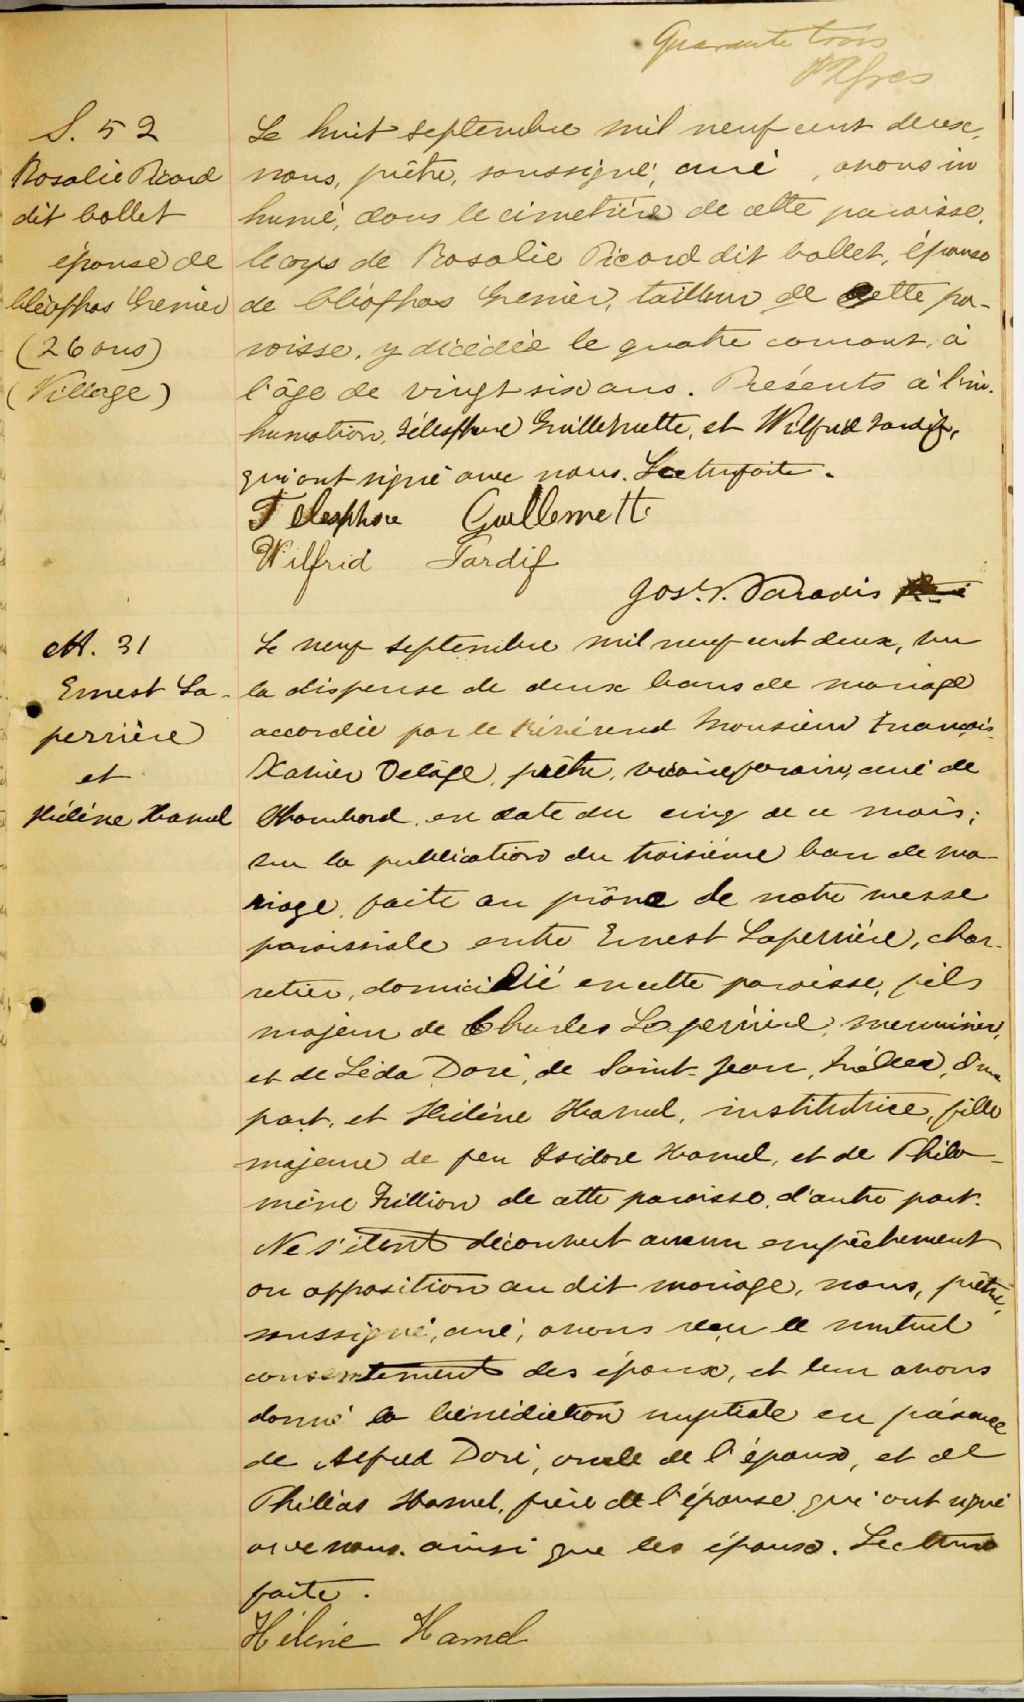 Quarante trois
S. 52
Rosalie Picard
dit Collet
épouse de
Cléophas Grenier
(26 ans)
(Village)
Le huit septembre mil neuf cent deux,
nous, prêtre, soussigné, curé, avons in
humé, dans le cimetière de cette paroisse,
le corps de Rosalie Picard dit Collet, épouse
de Cléophas Grenier, tailleur de cette pa-
roisse, y décédée le quatre courant, à
l'âge de vingt six ans. Présents à l'in-
humation, Télesphore Guillemette, et Wilfrid Tardif,
qui ont signé avec nous. Lecture faite.
Télesphore Guillemette
Wilfrid Tardif
Jos. N. Paradis
M. 31
Ernest La-
perrière
et
Hélène Hamel
Le neuf septembre mil neuf cent deux, vu
la dispense de deux bans de mariage
accordée par le Révérend Monsieur François-
Xavier Delâge, prêtre, vicaire forain, curé de
Chambord, en date du cinq de ce mois;
vu la publication du troisième ban de ma-
riage, faite au prône de notre messe
paroissiale entre Ernest Laperrière, char-
retier, domicilié en cette paroisse, fils
majeur de Charles Laperrière, menuisier,
et de Léda Doré, de Saint-Jean, d'une
part, et Hélène Hamel, institutrice, fille
majeure de feu Isidore Hamel, et de Philo-
mène Trillion de cette paroisse, d'autre part.
Ne s'étant découvert aucun empêchement
ou opposition au dit mariage, nous, prêtre,
soussigné, curé, avons reçu le mutuel
consentement des époux, et leur avons
donné la bénédiction nuptiale en présence
de Alfred Doré, oncle de l'époux, et de
Philéas Hamel, frère de l'épouse, qui ont signé
avec nous ainsi que les époux. Lecture
faite.
Hélène Hamel